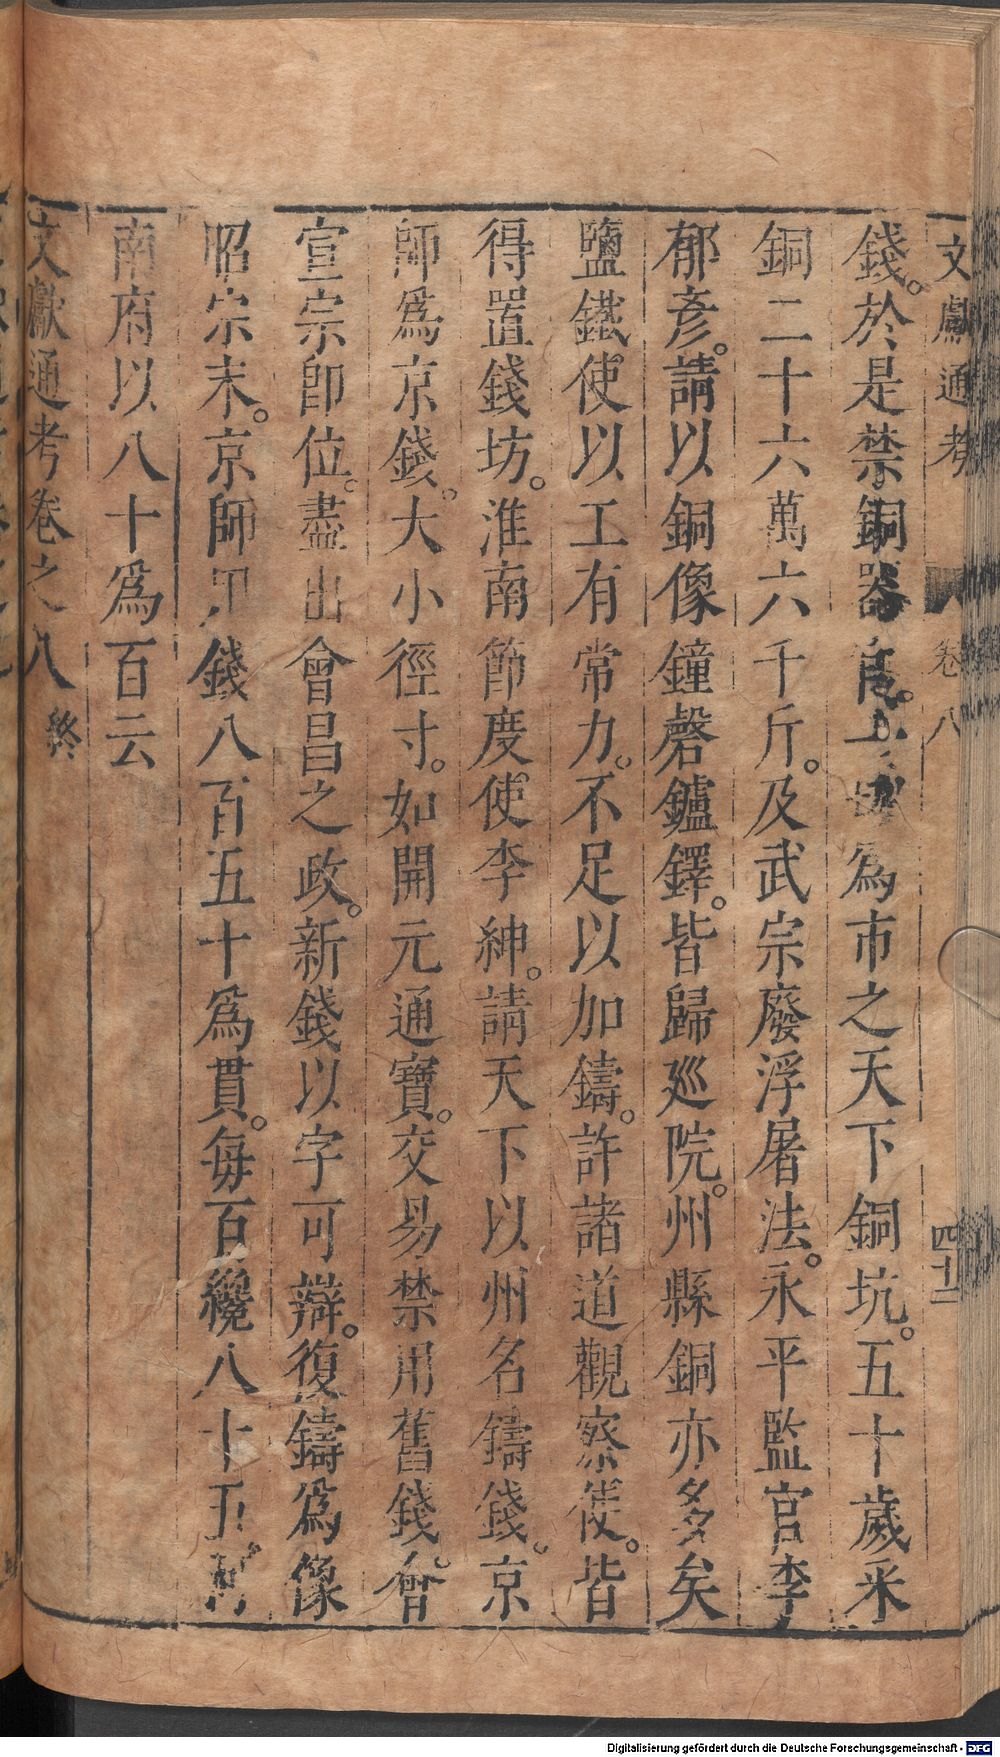 文獻通考 卷八 四十二
錢。於是禁銅器官為市之天下銅坑。五十歲采
銅二十六萬六千斤。及武宗廢浮屠法。永平監官李
郁彥。請以銅像鐘磬鑪鐸。皆歸廵院。州縣銅亦多矣
鹽鐵使以工有常力。不足以加鑄。許諸道觀察使。皆
得置錢坊。淮南節度使李紳。請天下以州名鑄錢。京
師爲京錢。大小徑寸。如開元通寶。交易禁用舊錢。會
宣宗卽位。盡出會昌之政。新錢以字可辯。復鑄爲像
昭宗末。京師用錢八百五十爲貫。每百纔八十五河
南府以八十爲百云
文獻通考卷之八 終
Digitalisierung gefördert durch die Deutsche Forschungsgemeinschaft - DFG